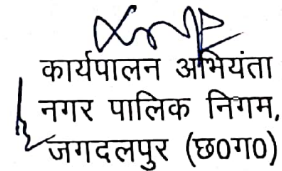 कार्यपालन अभियंता
नगर पालिक निगम,
जगदलपुर (छ0ग0)